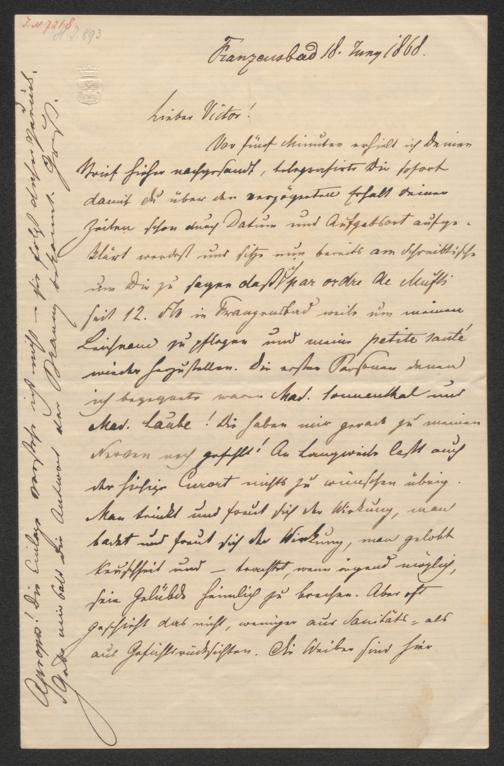 Franzensbad 18. Juny 1868.
Lieber Victor!
Vor fünf Minuten erhielt ich Deinen
Brief hieher nachgesandt, telegrafirte Dir sofort
damit du über den verzögerten Erhalt deiner
Zeilen schon durch Datum und Aufgabsort aufge-
klärt werdest und sitze nun bereits am Schreibtische
um Dir zu sagen daß ich par ordre de Mufti
seit 12. in Franzensbad weile um meinen
Leichnam zu pflegen und meine petite santé
wieder herzustellen. Die ersten Personen denen
ich begegnete waren Mad. Sonnenthal und
Mad. Laube! Die haben mir gerade zu meinen
Nerven noch gefehlt! An Langweile läßt auch
der hiesige Curort nichts zu wünschen übrig.
Man trinkt und freut sich der Wirkung, man
badet und freut sich der Wirkung, man gelobt
Keuschheit und — trachtet, wenn irgend möglich,
sein Gelübde heimlich zu brechen. Aber oft
geschieht das nicht, weniger aus Sanitäts- als
aus Gefühlsrücksichten. Die Weiber sind hier
Apropos! Die Einlage verstehe ich nicht — sie folgt daher zurück.
Gebe mir bald die Antwort der bekannt.